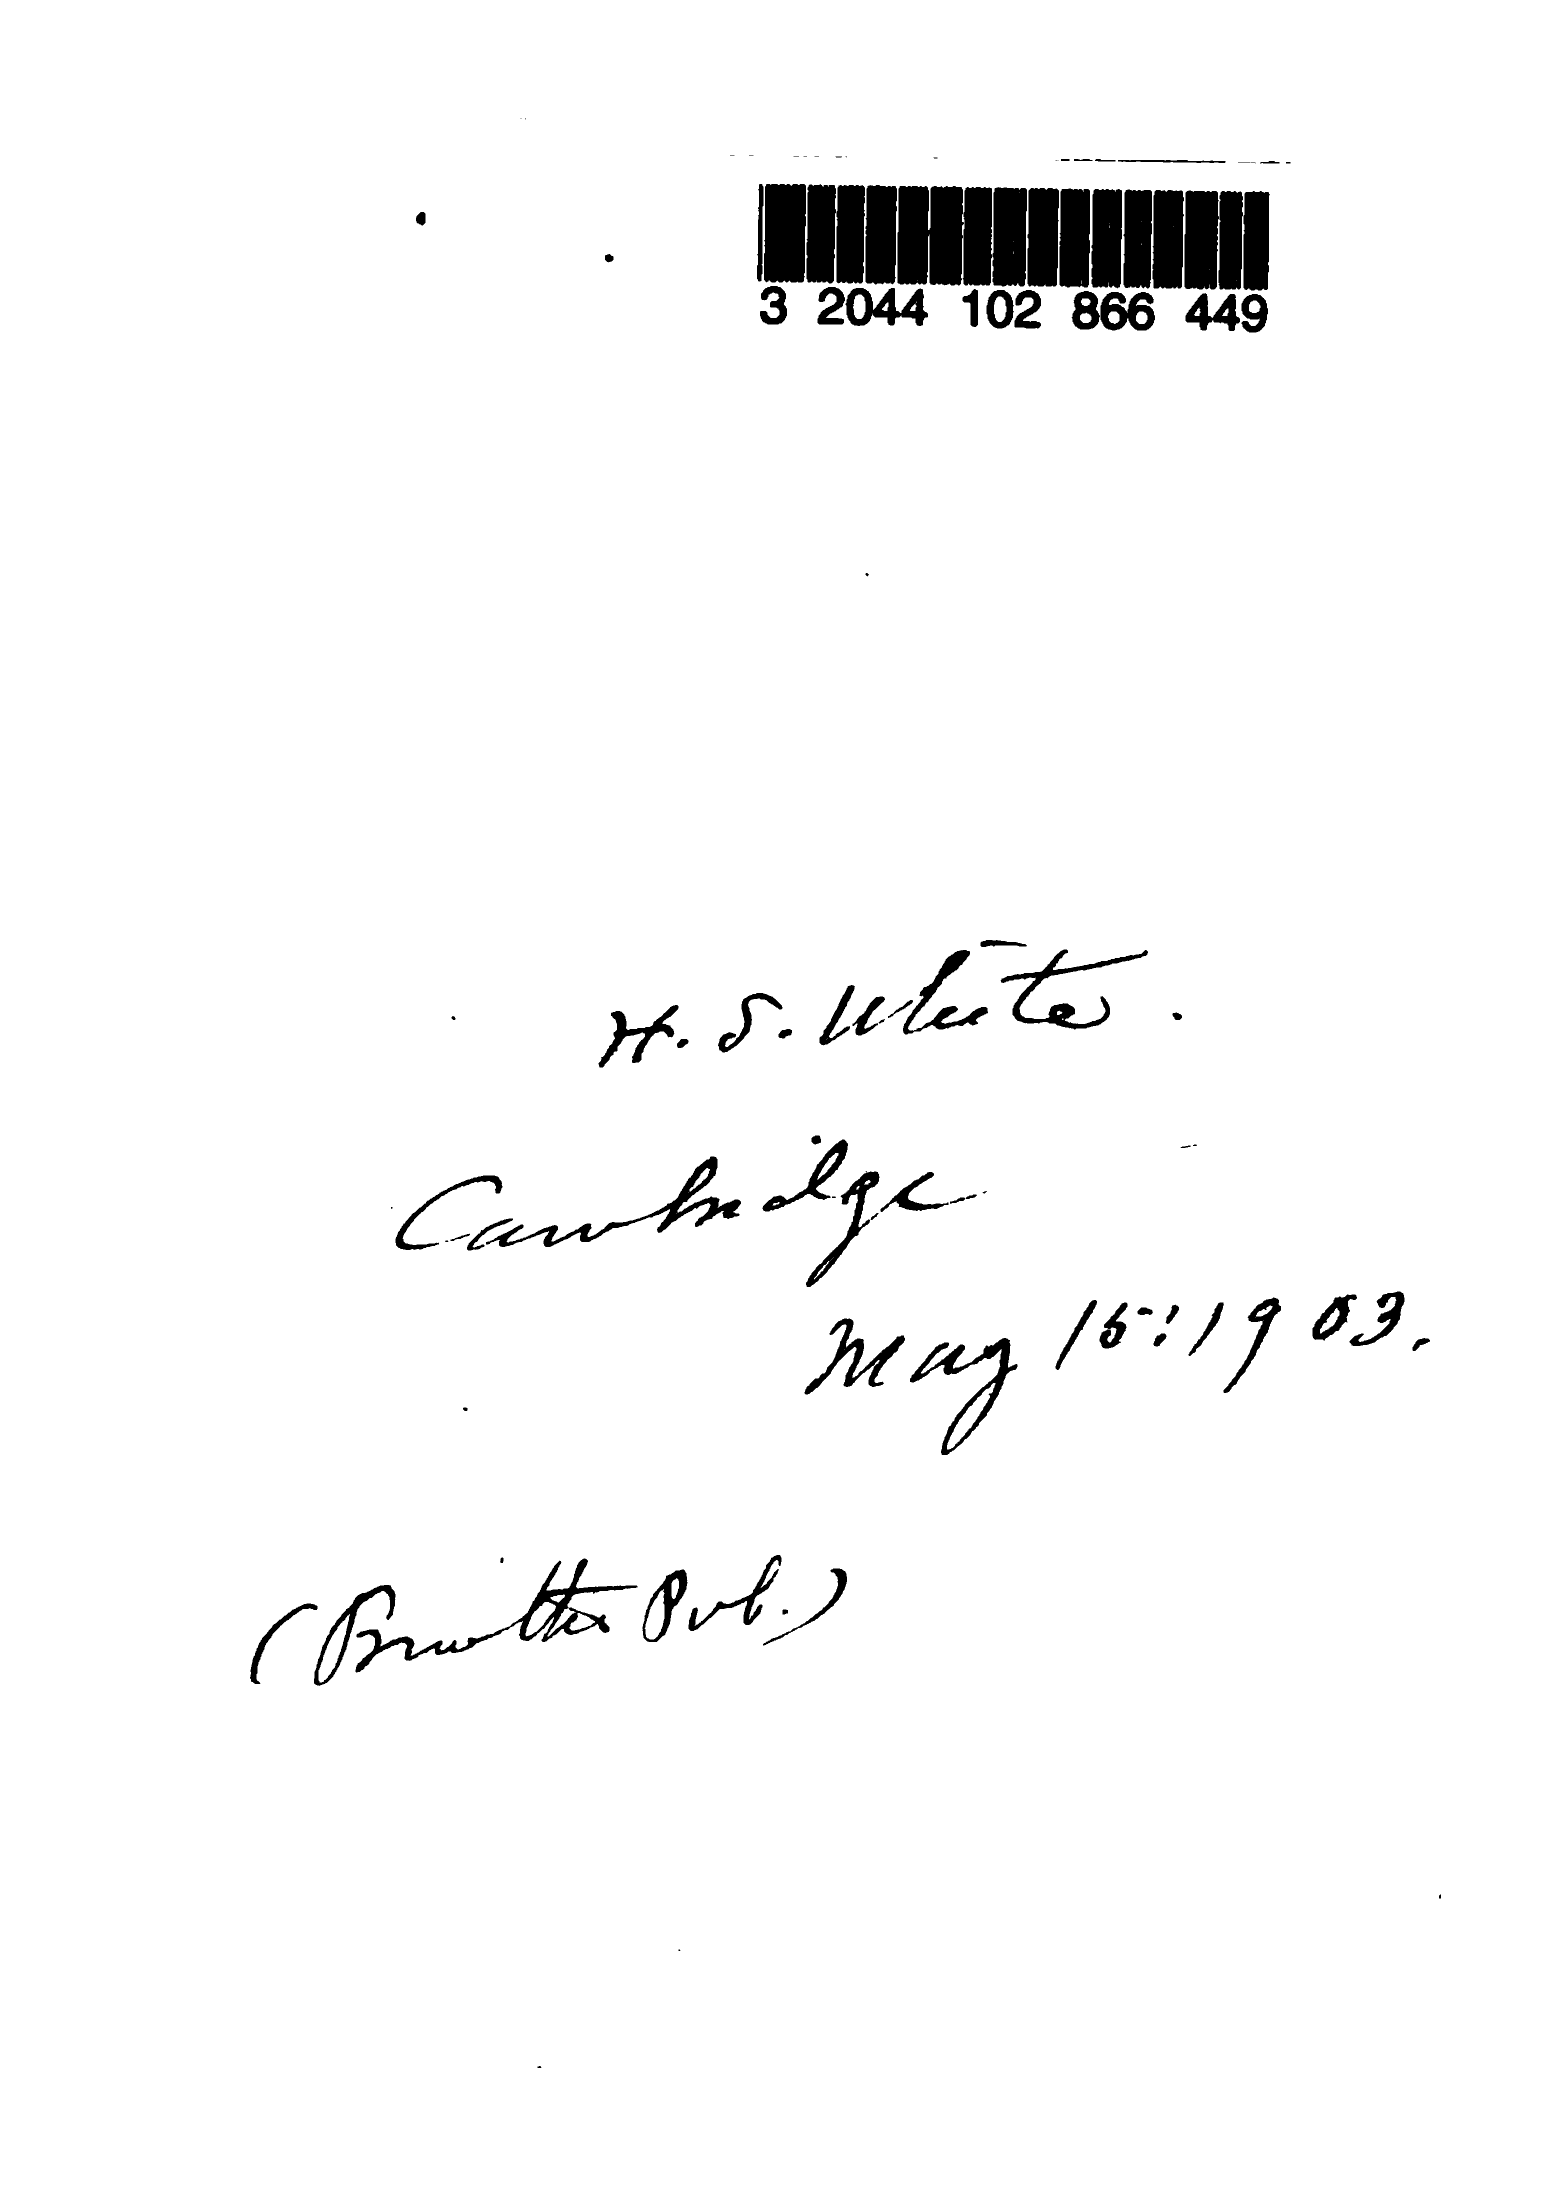 3 2044 102 866 449
H. S. White.
Cambridge
May 15: 1903.
Pub.)